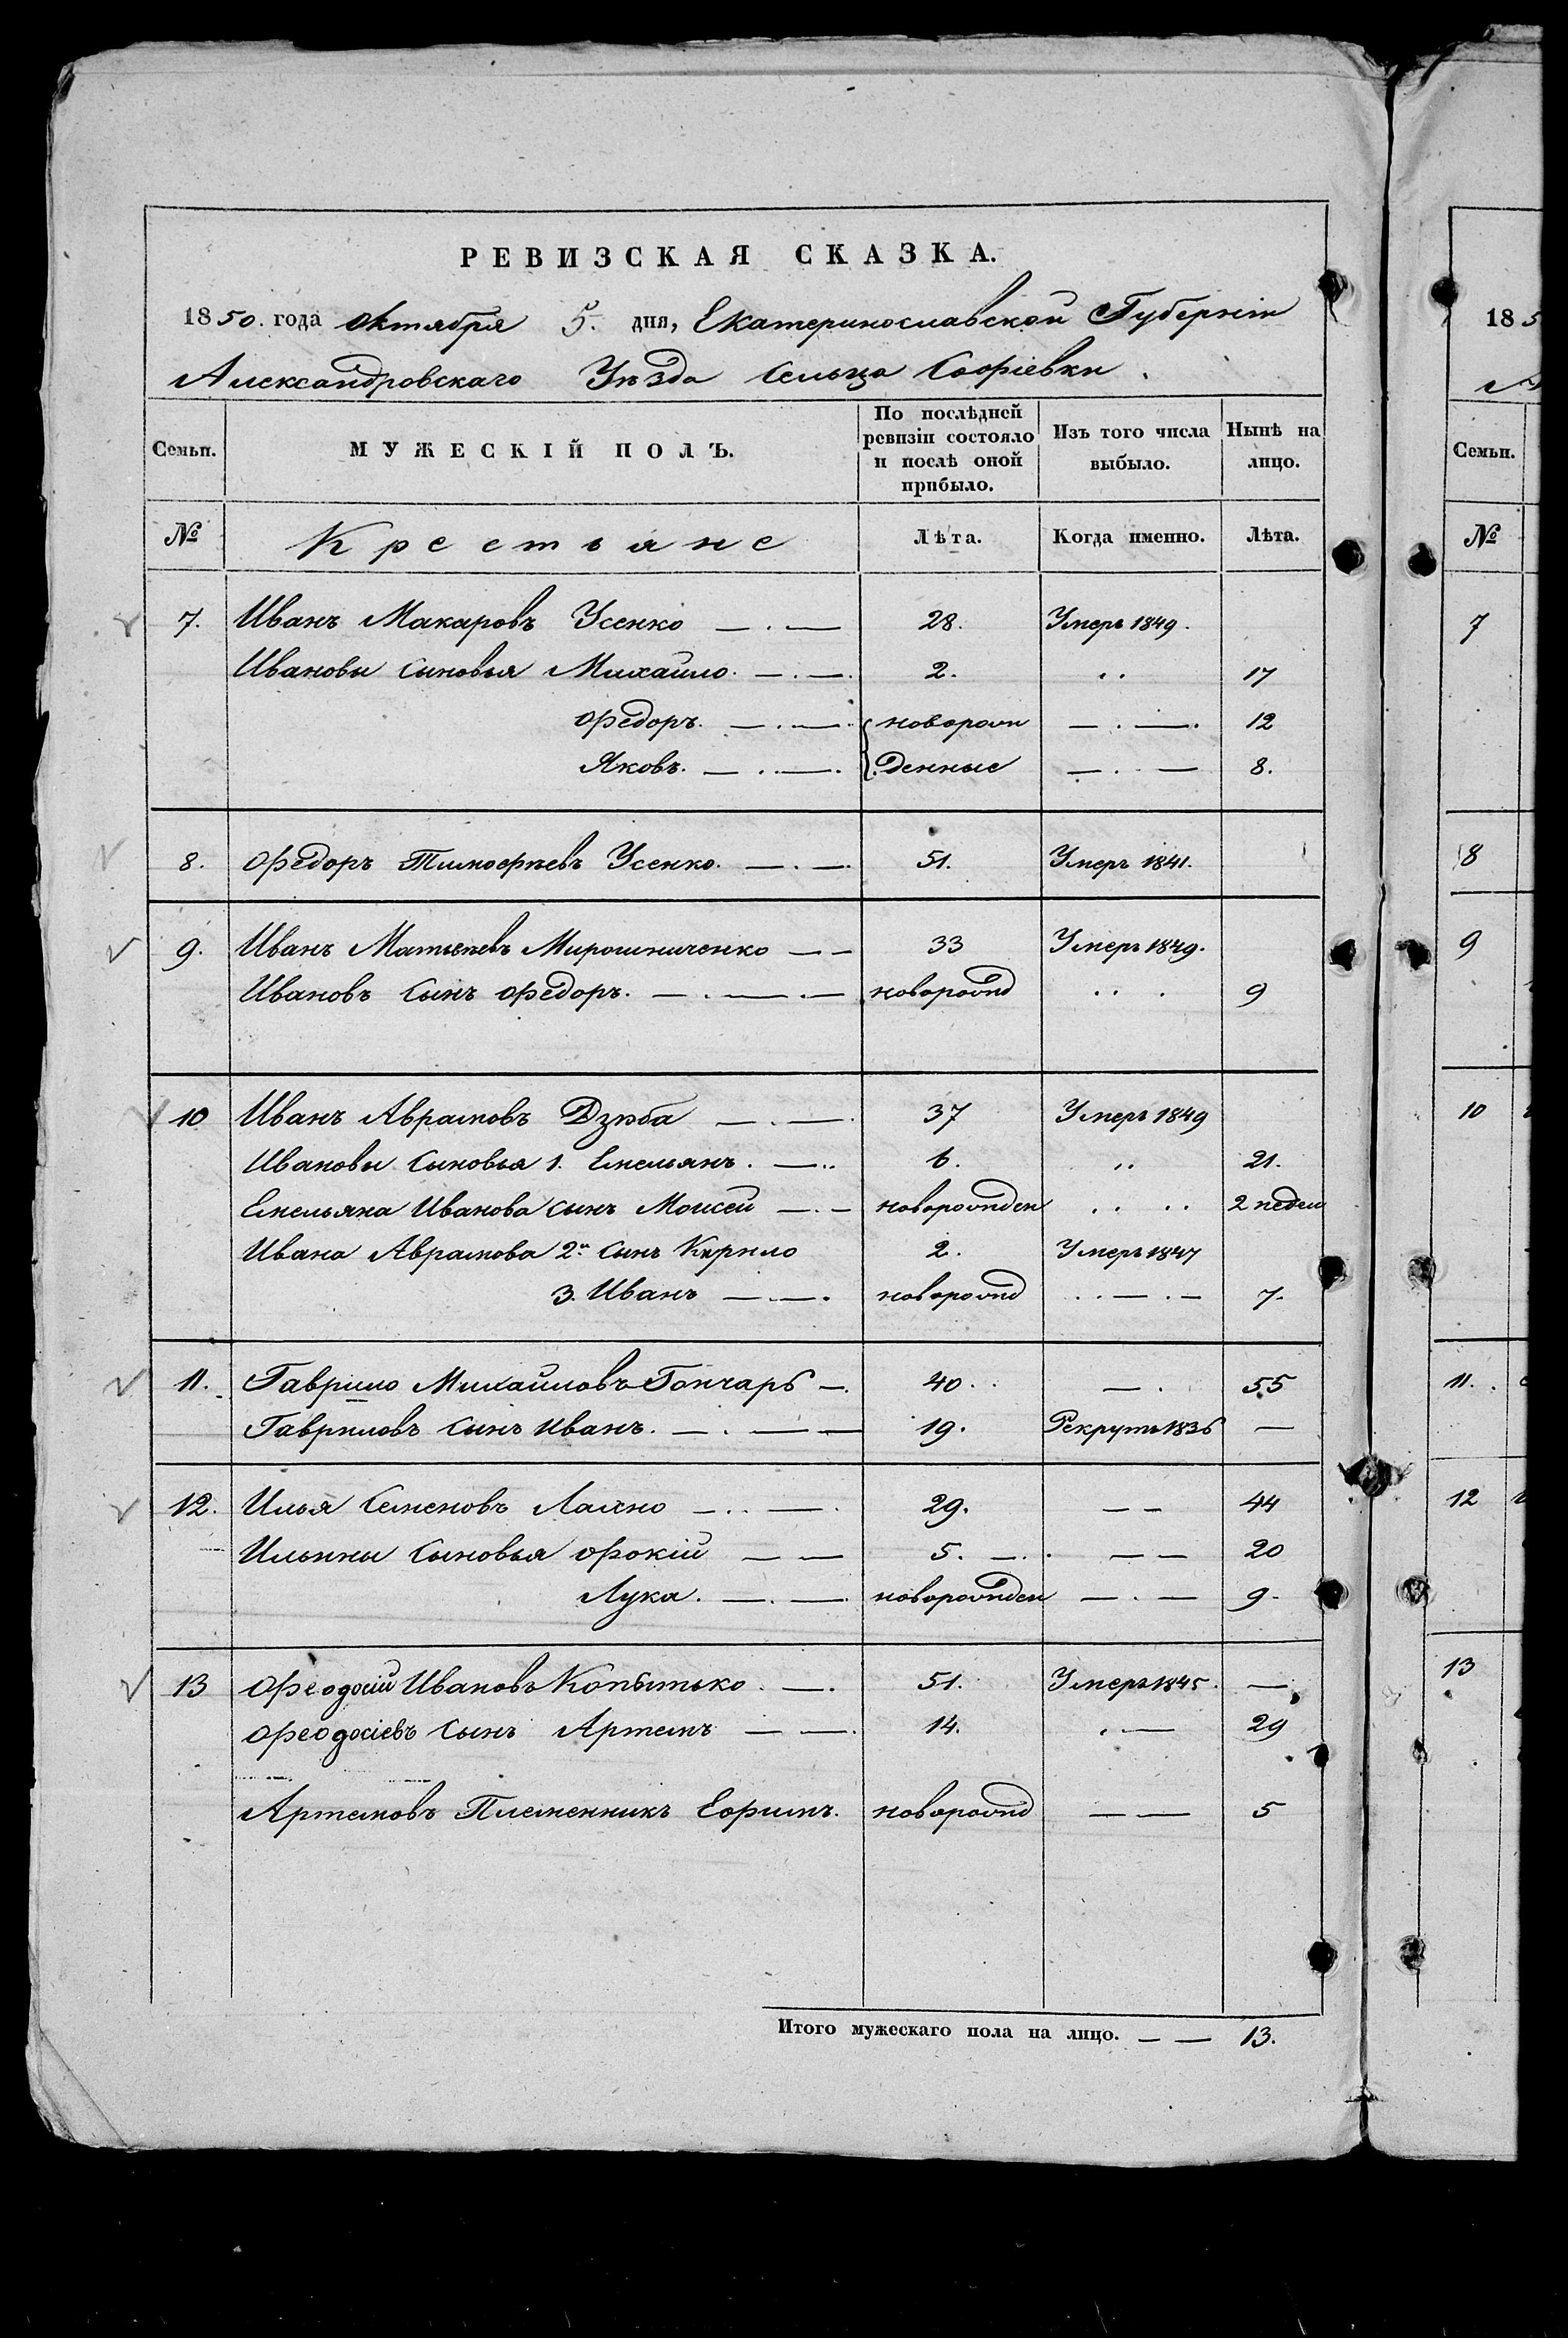 РЕВИЗСКАЯ СКАЗКА.
1850. года Октября 5. дня, Екатеринославской Губерніи
Александровскаго Уѣзда Сельца Софіевки.
Семьи. МУЖЕСКІЙ ПОЛЪ. По послѣдней ревизіи состояло и послѣ оной прибыло. Изъ того числа выбыло. Нынѣ на лицо.
№ Крестьяне Лѣта. Когда именно. Лѣта.
7. Иванъ Макаровъ Усенко 28. Умеръ 1849.
Ивановы Сыновья Михайло. 2. 17
Федоръ. новорож 12
Яковъ. денные 8.
8. Федоръ Тимофѣевъ Усенко. 51. Умеръ 1841.
9. Иванъ Матвѣевъ Мирошниченко 33 Умеръ 1849.
Ивановъ Сынъ Федоръ. новорожд 9
10 Иванъ Аврамовъ Дзюба 37 Умеръ 1849
Ивановы Сыновья 1. Емельянъ. 6. 21.
Емельяна Иванова сынъ Моисей новорожден 2 недели
Ивана Аврамова 2й Сынъ Кирило 2. Умеръ 1847
3. Иванъ новорожд 7.
11. Гаврило Михайловъ Гончаръ 40. 55
Гавриловъ Сынъ Иванъ. 19. Рекрутъ 1836
12. Илья Семеновъ Лахно 29. 44
Ильины Сыновья Фокій 5. 20
Лука. новорожден 9.
13 Феодосій Ивановъ Копытько 51. Умеръ 1845.
Феодосіевъ Сынъ Артемъ 14. 29
Артемовъ Племенникъ Ефимъ. новорожд 5
Итого мужескаго пола на лицо. 13.
18 5
Семьи.
№
7
8
9
10
11.
12
13